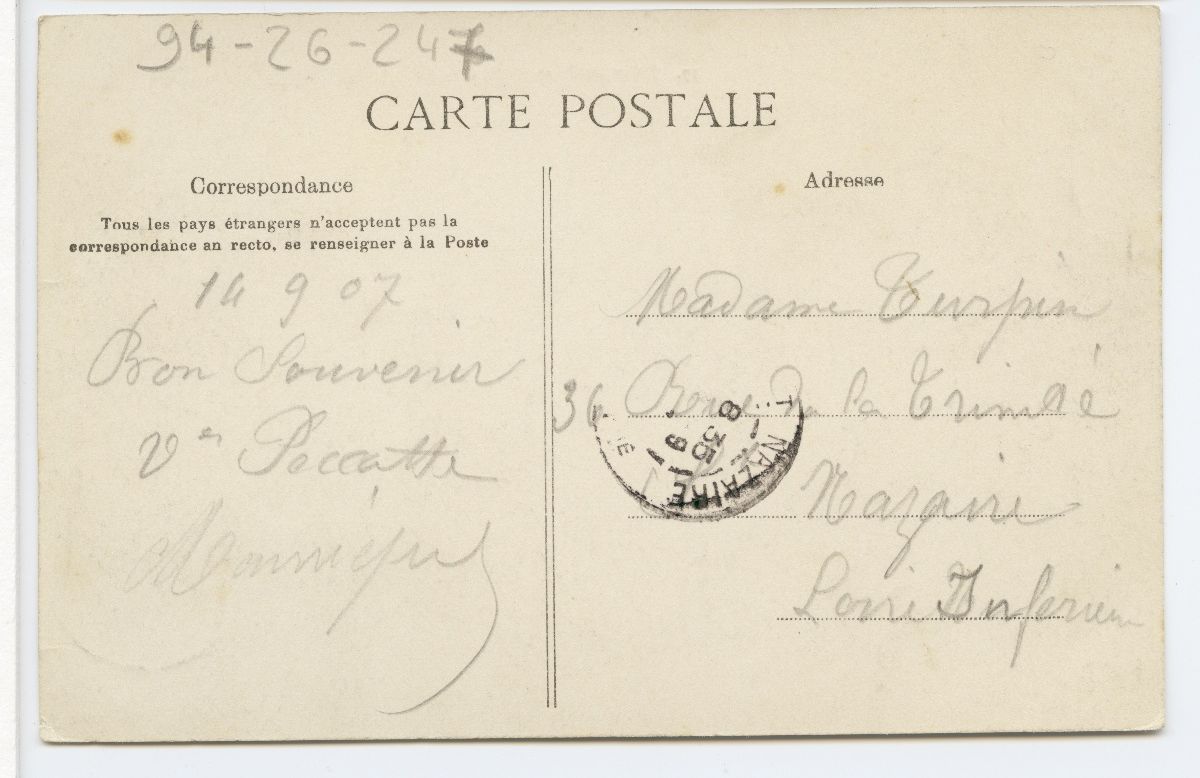 94-26-247
CARTE POSTALE
Correspondance
Tous les pays étrangers n'acceptent pas la
correspondance au recto, se renseigner à la Poste
14 9 07
Bon Souvenir
Adresse
Madame Turpin
36 Rue de la Trinité
St Nazaire
Loire Inferieu
NAZAIRE
8 35
9